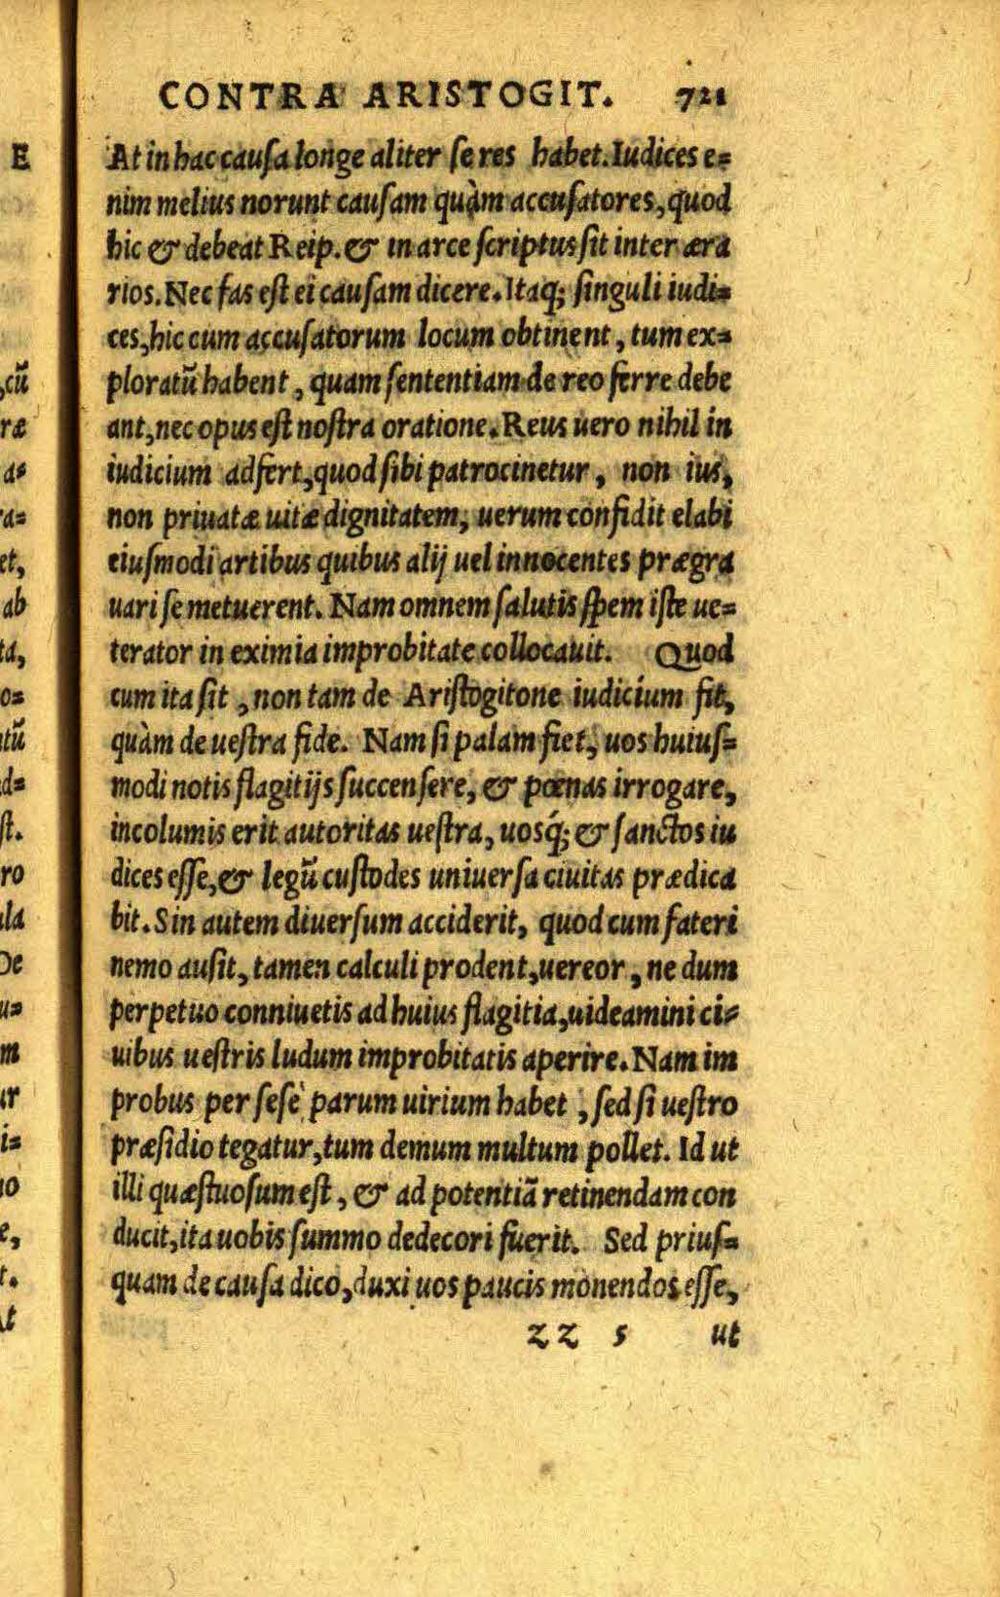 CONTRA ARISTOGIT. 721
At in hac causa longe aliter se res habet. Iudices e=
nim melius norunt causam quàm accusatores, quod
hic & debeat Reip. & in arce scriptus sit inter æra
rios. Nec fas est ei causam dicere. Itaq; singuli iudi=
ces, hic cum accusatorum locum obtinent, tum ex=
ploratũ habent, quam sententiam de reo ferre debe
ant, nec opus est nostra oratione. Reus uero nihil in
iudicium adfert, quod sibi patrocinetur, non ius,
non priuatæ uitæ dignitatem, uerum confidit elabi
eiusmodi artibus quibus alij uel innocentes prægra
uari se metuerent. Nam omnem salutis spem iste ue=
terator in eximia improbitate collocauit. Quod
cum ita sit, non tam de Aristogitone iudicium fit,
quàm de uestra fide. Nam si palam fiet, uos huius=
modi notis flagitijs succensere, & pœnas irrogare,
incolumis erit autoritas uestra, uosq́; & sanctos iu
dices esse, & legũ custodes uniuersa ciuitas prædica
bit. Sin autem diuersum acciderit, quod cum fateri
nemo ausit, tamen calculi prodent, uereor, ne dum
perpetuo conniuetis ad huius flagitia, uideamini ci=
uibus uestris ludum improbitatis aperire. Nam im
probus per sesè parum uirium habet, sed si uestro
præsidio tegatur, tum demum multum pollet. Id ut
illi quæstuosum est, & ad potentiã retinendam con
ducit, ita uobis summo dedecori fuerit. Sed prius=
quam de causa dico, duxi uos paucis monendos esse,
zz 5 ut
E
,cũ
ræ
a=
ra=
et,
ab
ta,
o=
tũ
d=
st.
ro
ila
De
u=
m
ur
i=
io
e,
t.
At